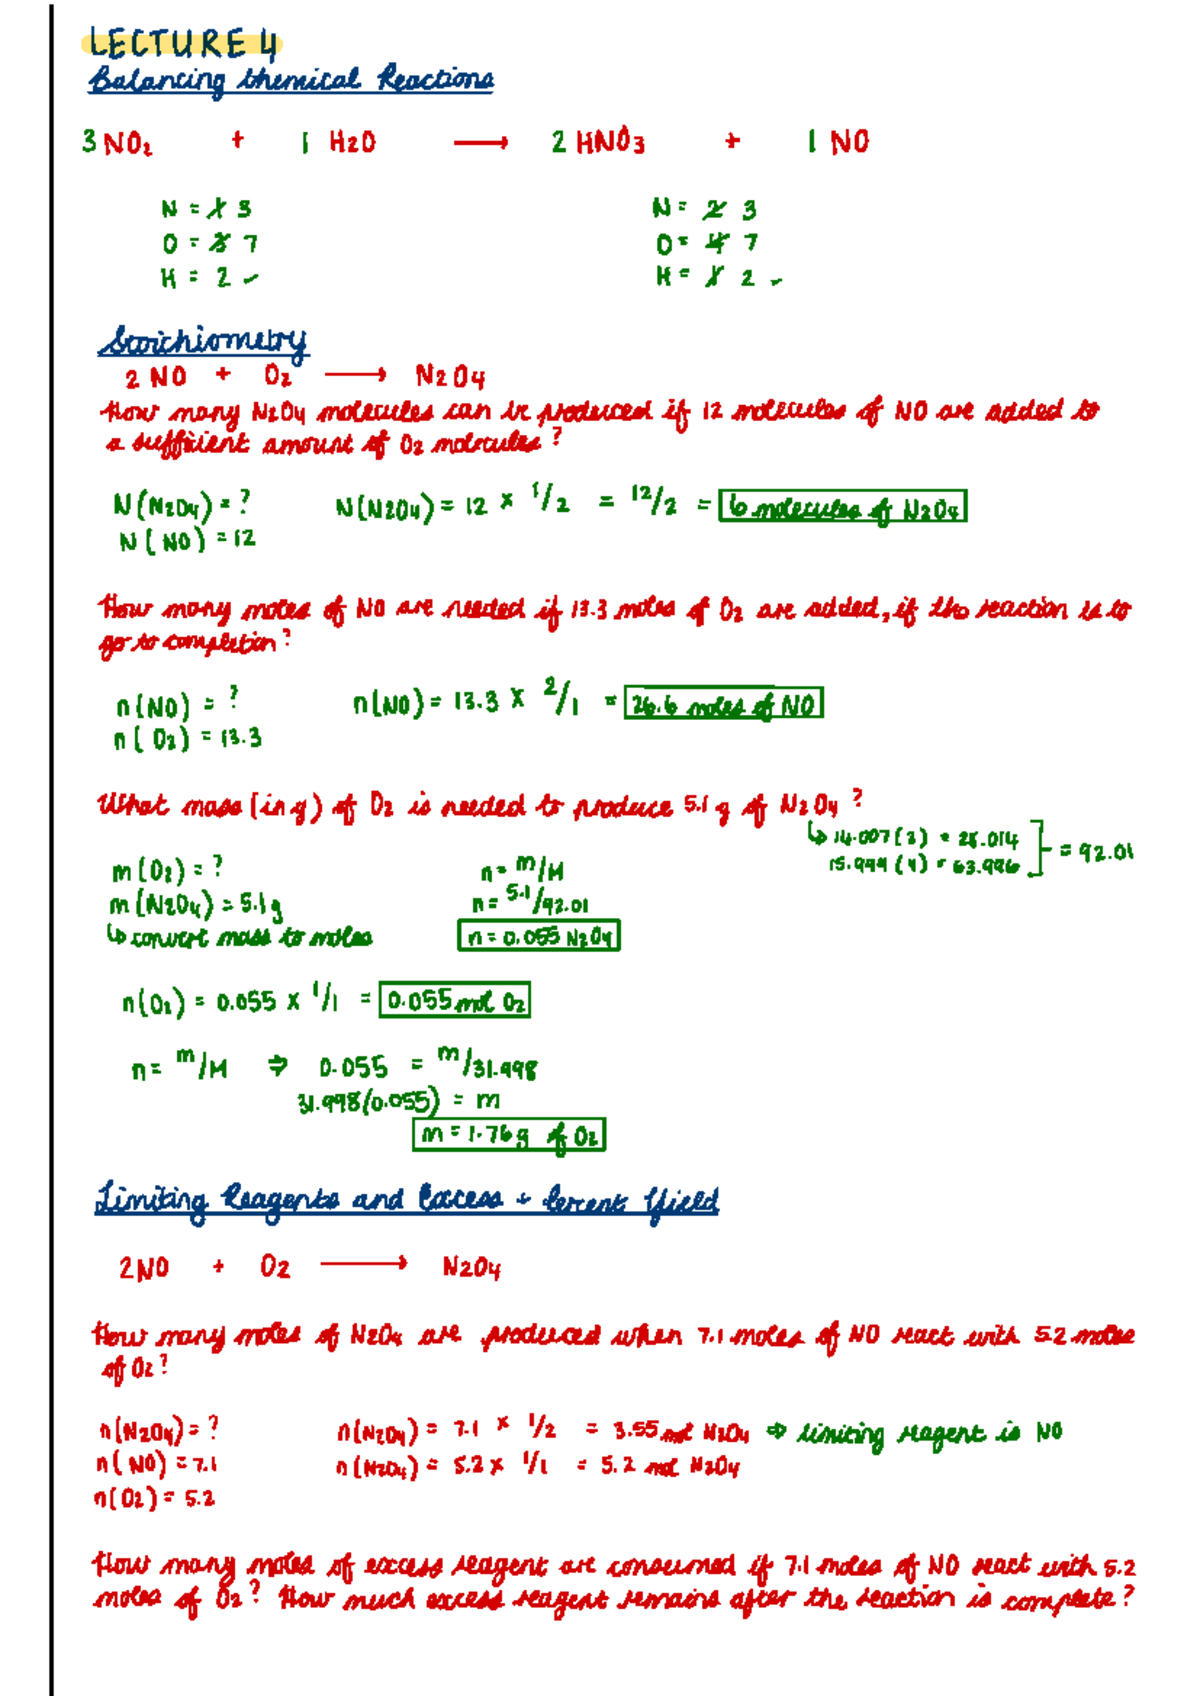 LECTURE 4
Balancing Chemical Reactions
3 NO₂ + 1 H2O ⟶ 2 HNO₃ + 1 NO
N = 1 3 N = 2 3
O = 3 7 O = 4 7
H = 2 ✓ H = 1 2 ✓
Stoichiometry
2 NO + O₂ ⟶ N₂O₄
How many N₂O₄ molecules can be produced if 12 molecules of NO are added to
a sufficient amount of O₂ molecules?
N(N₂O₄) = ? N(N₂O₄) = 12 × 1/2 = 12/2 = 6 molecules of N₂O₄
N(NO) = 12
How many moles of NO are needed if 13.3 moles of O₂ are added, if the reaction is to
go to completion?
n(NO) = ? n(NO) = 13.3 × 2/1 = 26.6 moles of NO
n(O₂) = 13.3
What mass (in g) of O₂ is needed to produce 5.1 g of N₂O₄?
↳ 14.007(2) = 28.014
15.999(4) = 63.996 ] = 92.01
m(O₂) = ? n = m/M
m(N₂O₄) = 5.1g n = 5.1/92.01
↳ convert mass to moles n = 0.055 N₂O₄
n(O₂) = 0.055 × 1/1 = 0.055 mol O₂
n = m/M ⇒ 0.055 = m/31.998
31.998(0.055) = m
m = 1.76g of O₂
Limiting Reagents and Excess + Percent Yield
2NO + O₂ ⟶ N₂O₄
How many moles of N₂O₄ are produced when 7.1 moles of NO react with 5.2 moles
of O₂?
n(N₂O₄) = ? n(N₂O₄) = 7.1 × 1/2 = 3.55 mol N₂O₄ ⇒ limiting reagent is NO
n(NO) = 7.1 n(N₂O₄) = 5.2 × 1/1 = 5.2 mol N₂O₄
n(O₂) = 5.2
How many moles of excess reagent are consumed if 7.1 moles of NO react with 5.2
moles of O₂? How much excess reagent remains after the reaction is complete?